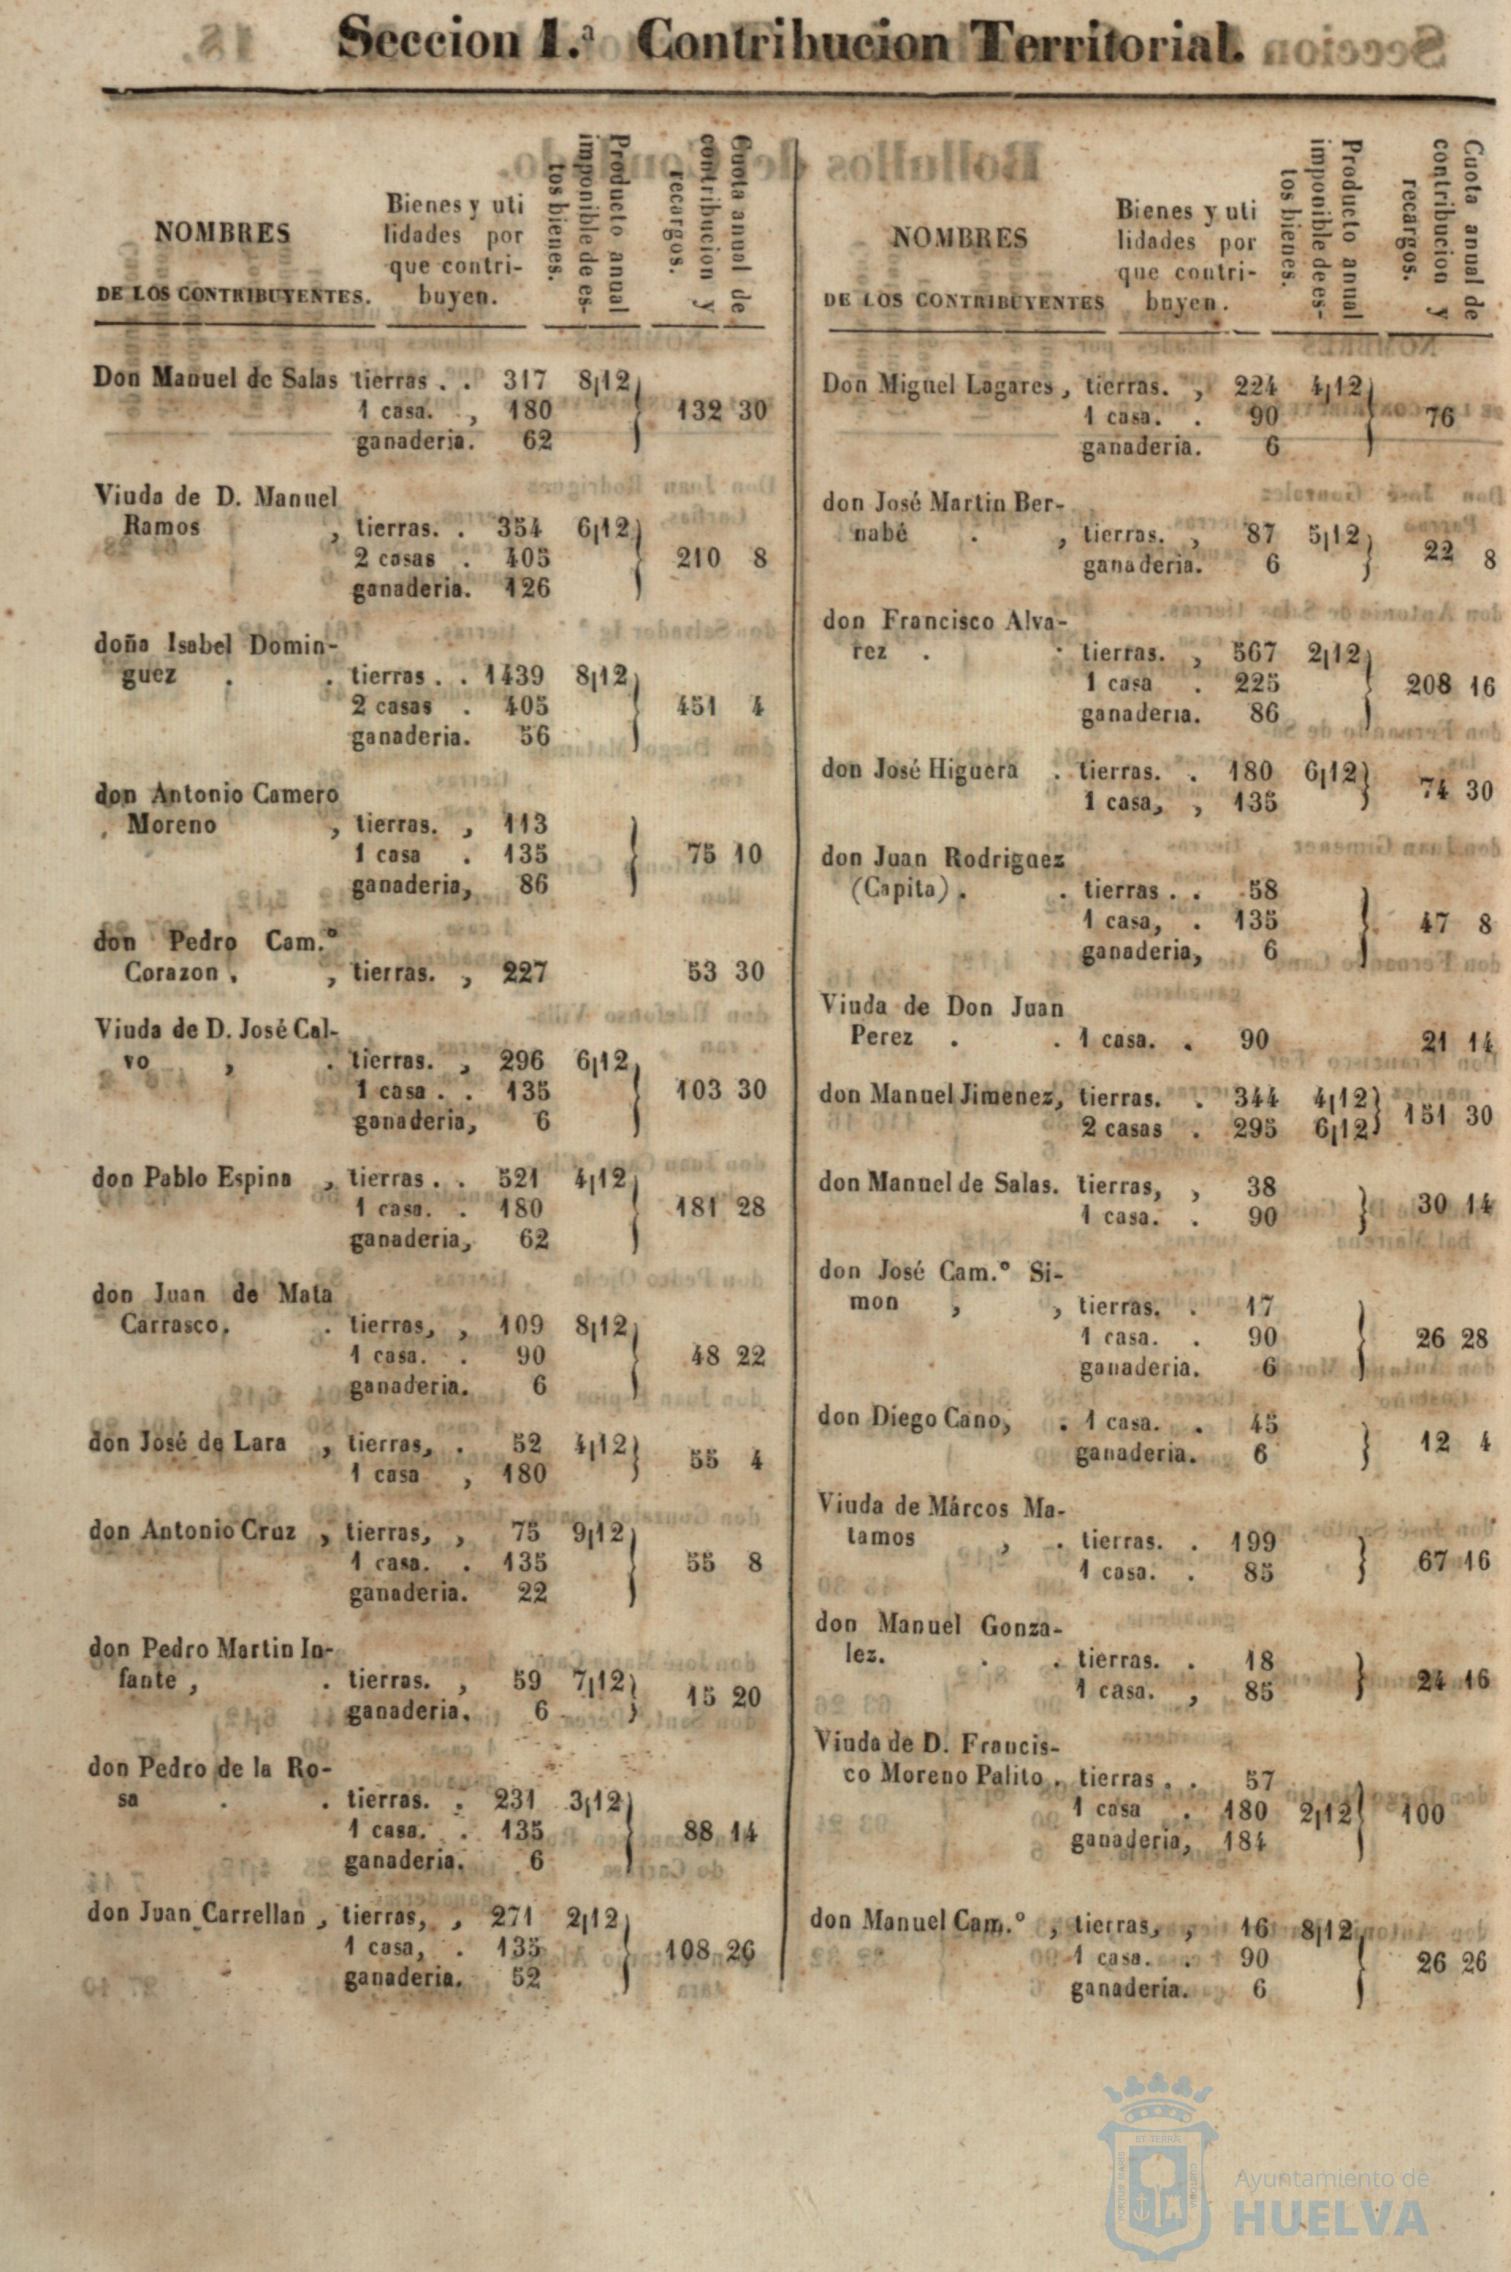 Seccion 1.ª Contribucion Territorial.
NOMBRES
DE LOS CONTRIBUYENTES.
Bienes y uti
lidades por
que contri-
buyen.
Producto anual
imponible de es-
tos bienes.
Cuota anual de
contribucion y
recargos.
Don Manuel de Salas tierras . . 317 8|12
1 casa. , 180 } 132 30
ganaderia. 62
Viuda de D. Manuel
Ramos , tierras. . 354 6|12
2 casas . 405 } 210 8
ganaderia. 126
doña Isabel Domin-
guez . . tierras . . 1439 8|12
2 casas . 405 } 451 4
ganaderia. 56
don Antonio Camero
Moreno , tierras. , 113
1 casa . 135 } 75 10
ganaderia, 86
don Pedro Cam.º
Corazon . , tierras. , 227 53 30
Viuda de D. José Cal-
vo , . tierras. , 296 6|12
1 casa . . 135 } 103 30
ganaderia, 6
don Pablo Espina , tierras . . 521 4|12
1 casa. . 180 } 181 28
ganaderia, 62
don Juan de Mata
Carrasco. . tierras, , 109 8|12
1 casa. . 90 } 48 22
ganaderia. 6
don José de Lara , tierras, . 52 4|12
1 casa , 180 } 55 4
don Antonio Cruz , tierras, , 75 9|12
1 casa. . 135 } 55 8
ganaderia. 22
don Pedro Martin In-
fante , . tierras. , 59 7|12
ganaderia. 6 } 15 20
don Pedro de la Ro-
sa . . tierras. . 231 3|12
1 casa. . 135 } 88 14
ganaderia. 6
don Juan Carrellan , tierras, , 271 2|12
1 casa, . 135 } 108 26
ganaderia. 52
NOMBRES
DE LOS CONTRIBUYENTES
Bienes y uti
lidades por
que contri-
buyen.
Producto anual
imponible de es-
tos bienes.
Cuota anual de
contribucion y
recargos.
Don Miguel Lagares , tierras. , 224 4|12
1 casa. . 90 } 76
ganaderia. 6
don José Martin Ber-
nabé . , tierras. , 87 5|12
ganaderia. 6 } 22 8
don Francisco Alva-
rez . . tierras. , 567 2|12
1 casa . 225 } 208 16
ganaderia. 86
don José Higuera . tierras. . 180 6|12
1 casa, , 135 } 74 30
don Juan Rodriguez
(Capita) . . tierras . . 58
1 casa, . 135 } 47 8
ganaderia, 6
Viuda de Don Juan
Perez . . 1 casa. . 90 21 14
don Manuel Jimenez, tierras. . 344 4|12
2 casas . 295 6|12 } 151 30
don Manuel de Salas. tierras, , 38
1 casa. . 90 } 30 14
don José Cam.º Si-
mon , , tierras. . 17
1 casa. . 90 } 26 28
ganaderia. 6
don Diego Cano, . 1 casa. . 45
ganaderia. 6 } 12 4
Viuda de Márcos Ma-
tamos , . tierras. . 199
1 casa. . 85 } 67 16
don Manuel Gonza-
lez. . . tierras. . 18
1 casa. , 85 } 24 16
Viuda de D. Francis-
co Moreno Palito . tierras . . 57
1 casa . 180 2|12 } 100
ganaderia, 184
don Manuel Cam.º , tierras, , 16 8|12
1 casa. . 90 } 26 26
ganaderia. 6
Ayuntamiento de
HUELVA